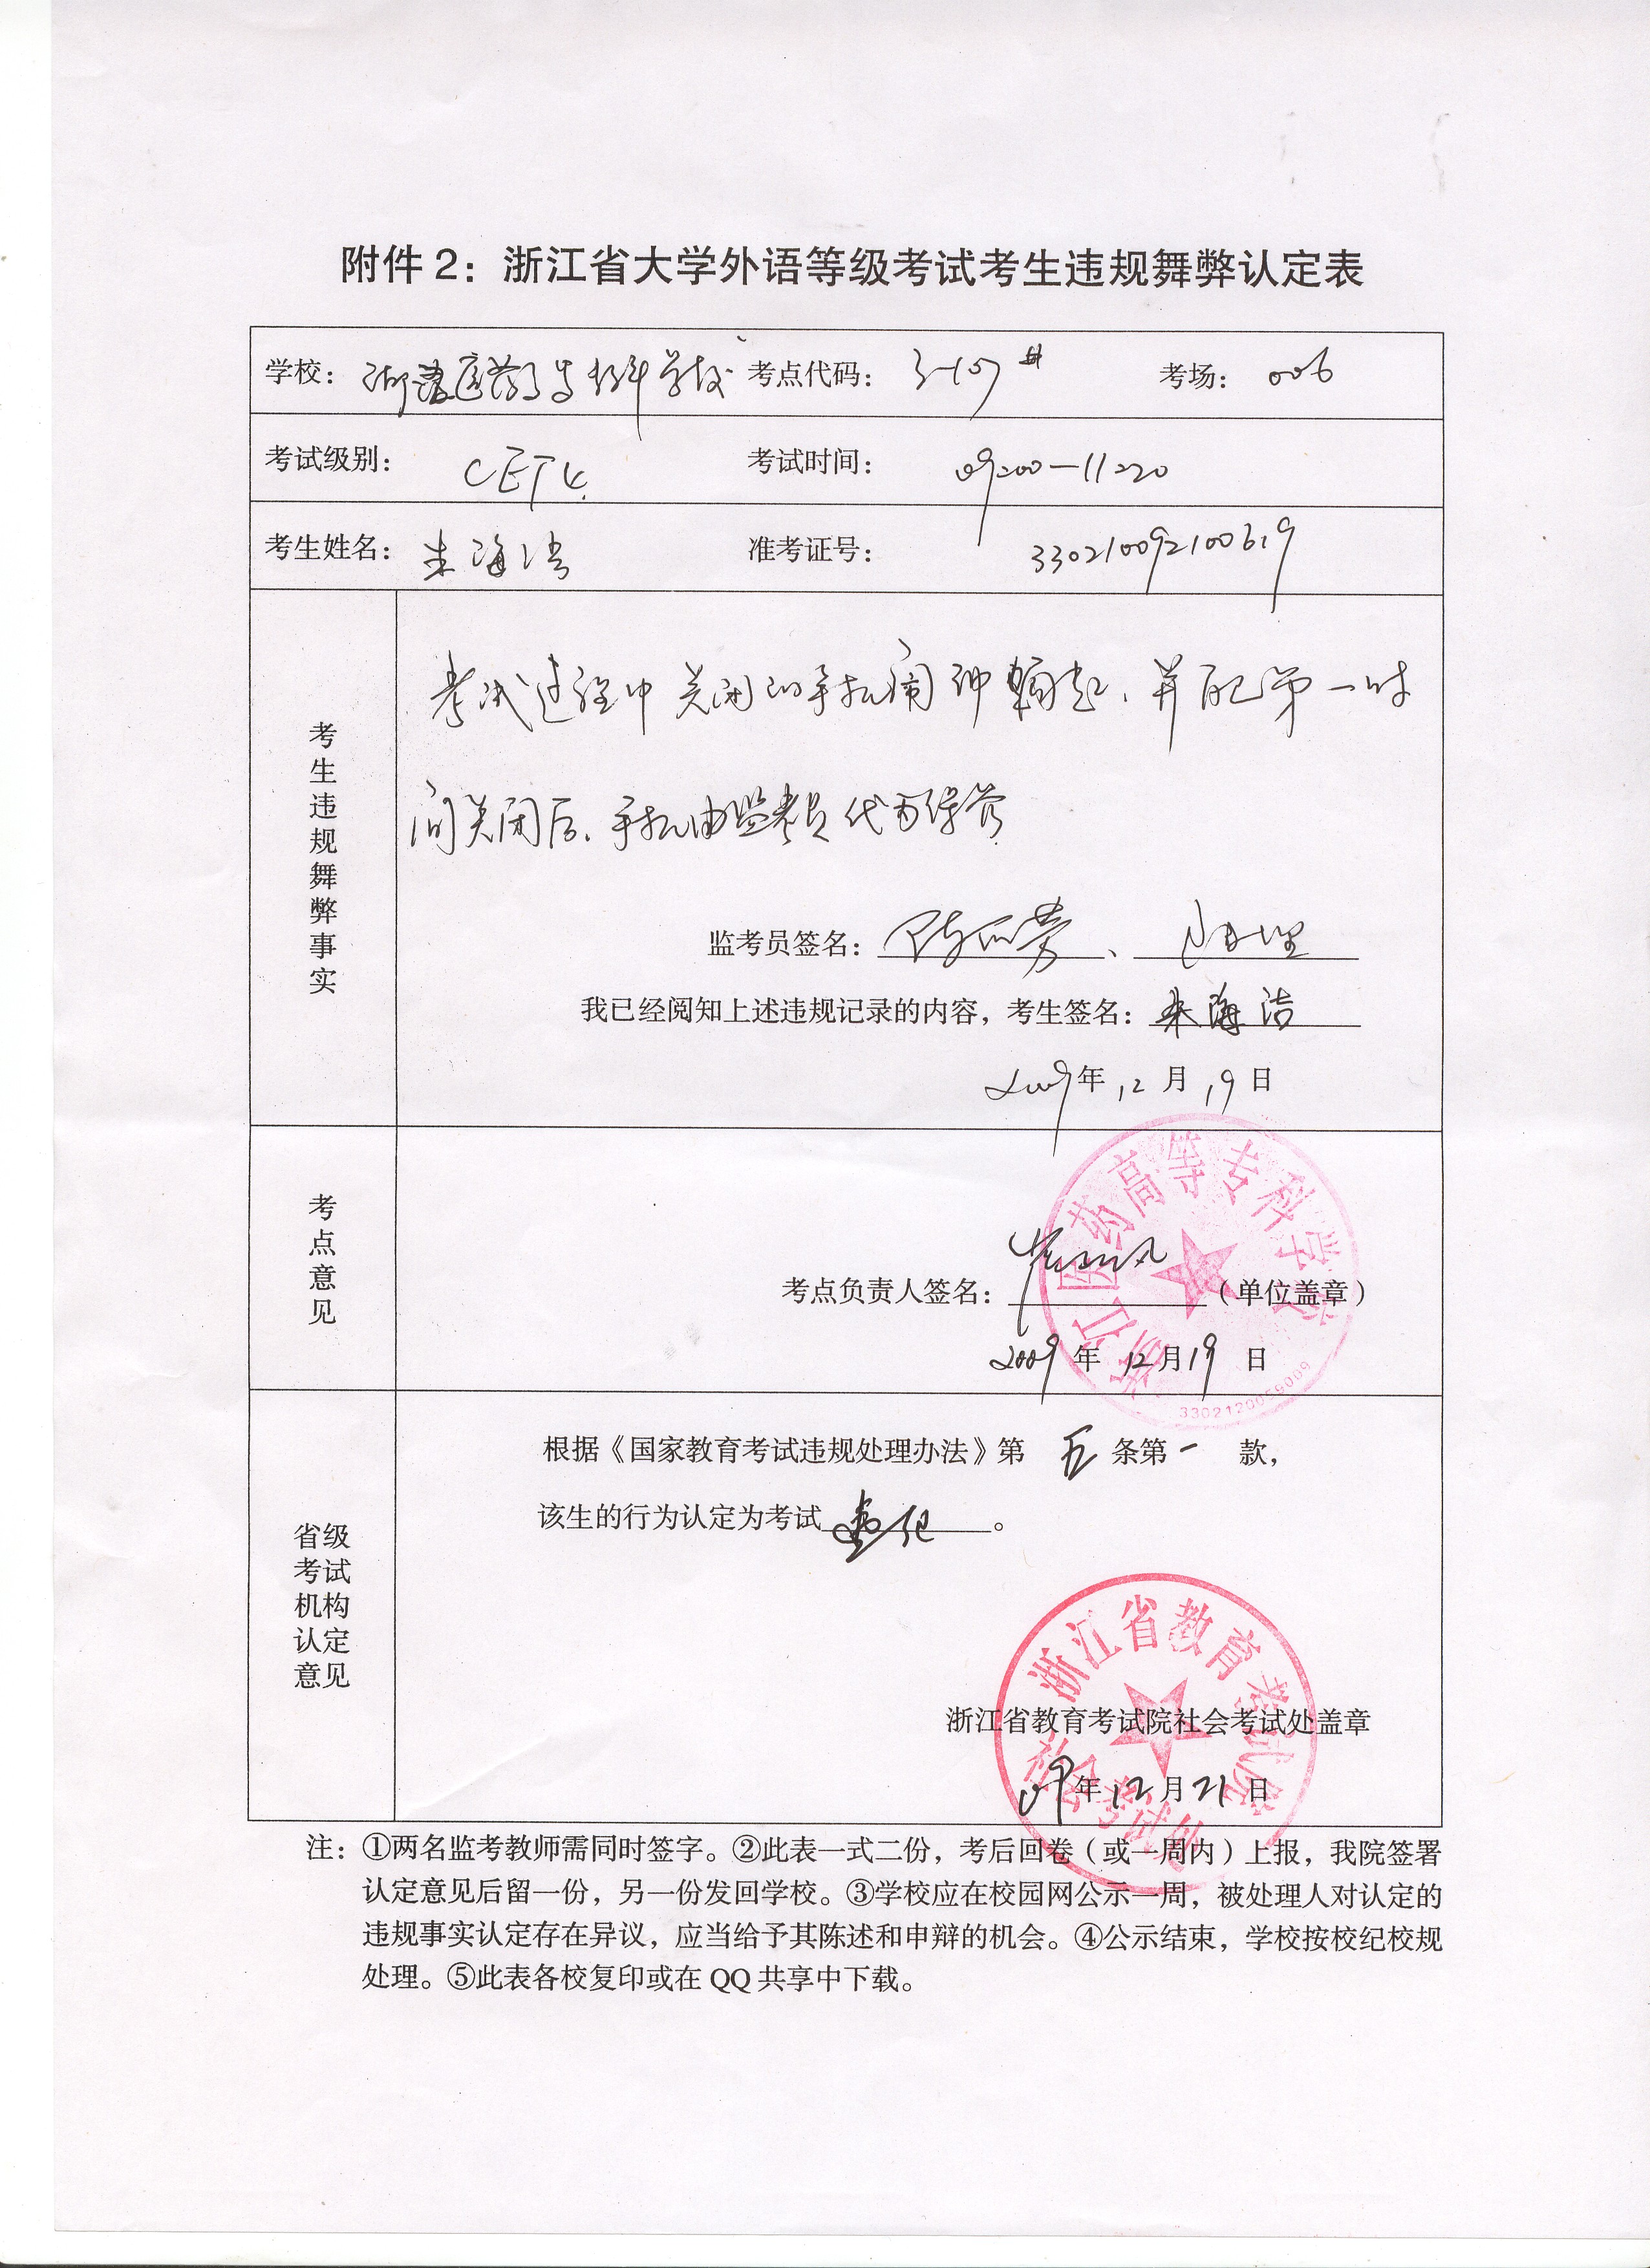 附件2：浙江省大学外语等级考试考生违规舞弊认定表
学校：浙江医药高等专科学校 考点代码： 考场：006
考试级别：CET4 考试时间：09:00—11:20
考生姓名：朱海洁 准考证号：330210092100619
考生违规舞弊事实
考试过程中关闭的手机闹钟响起，并配第一时
间关闭后，手机由监考员代为保管
监考员签名：
我已经阅知上述违规记录的内容，考生签名：朱海洁
2009年12月19日
考点意见
考点负责人签名：（单位盖章）
2009年12月19日
浙江医药高等专科学校
省级考试机构认定意见
根据《国家教育考试违规处理办法》第五条第一款，
该生的行为认定为考试违纪。
浙江省教育考试院社会考试处盖章
09年12月21日
浙江省教育考试院
社会考试处
注：①两名监考教师需同时签字。②此表一式二份，考后回卷（或一周内）上报，我院签署
认定意见后留一份，另一份发回学校。③学校应在校园网公示一周，被处理人对认定的
违规事实认定存在异议，应当给予其陈述和申辩的机会。④公示结束，学校按校纪校规
处理。⑤此表各校复印或在QQ共享中下载。